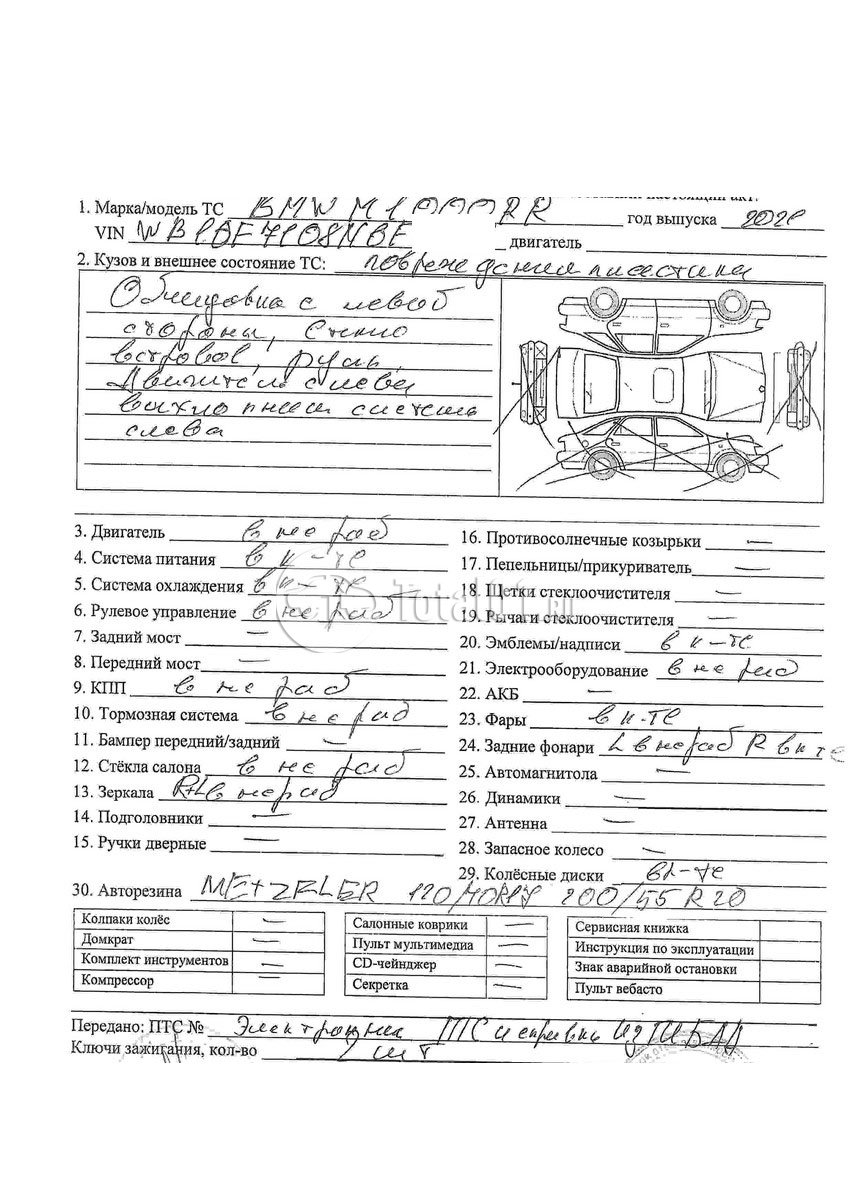 1. Марка/модель ТС BMW M1000RR год выпуска 202
VIN двигатель
2. Кузов и внешнее состояние ТС: повреждения
Облицовка с левой
стороны, Стекло
ветровое, руль,
Двигатель слева
выхлопная система
слева
3. Двигатель в не раб
4. Система питания в к-те
5. Система охлаждения в к-те
6. Рулевое управление в не раб
7. Задний мост —
8. Передний мост —
9. КПП в не раб
10. Тормозная система в не раб
11. Бампер передний/задний —
12. Стёкла салона в не раб
13. Зеркала R+L в не раб
14. Подголовники —
15. Ручки дверные —
16. Противосолнечные козырьки —
17. Пепельницы/прикуриватель —
18. Щетки стеклоочистителя —
19. Рычаги стеклоочистителя —
20. Эмблемы/надписи в к-те
21. Электрооборудование в не раб
22. АКБ —
23. Фары в к-те
24. Задние фонари L в не раб R в к те
25. Автомагнитола —
26. Динамики —
27. Антенна —
28. Запасное колесо —
29. Колёсные диски в к-те
30. Авторезина METZELER 120/70R17 200/55 R
Колпаки колёс —
Домкрат —
Комплект инструментов —
Компрессор —
Салонные коврики —
Пульт мультимедиа —
CD-чейнджер —
Секретка —
Сервисная книжка
Инструкция по эксплуатации
Знак аварийной остановки
Пульт вебасто
Передано: ПТС № ПТС и справка из ГИБДД
Ключи зажигания, кол-во шт
Total01.ru